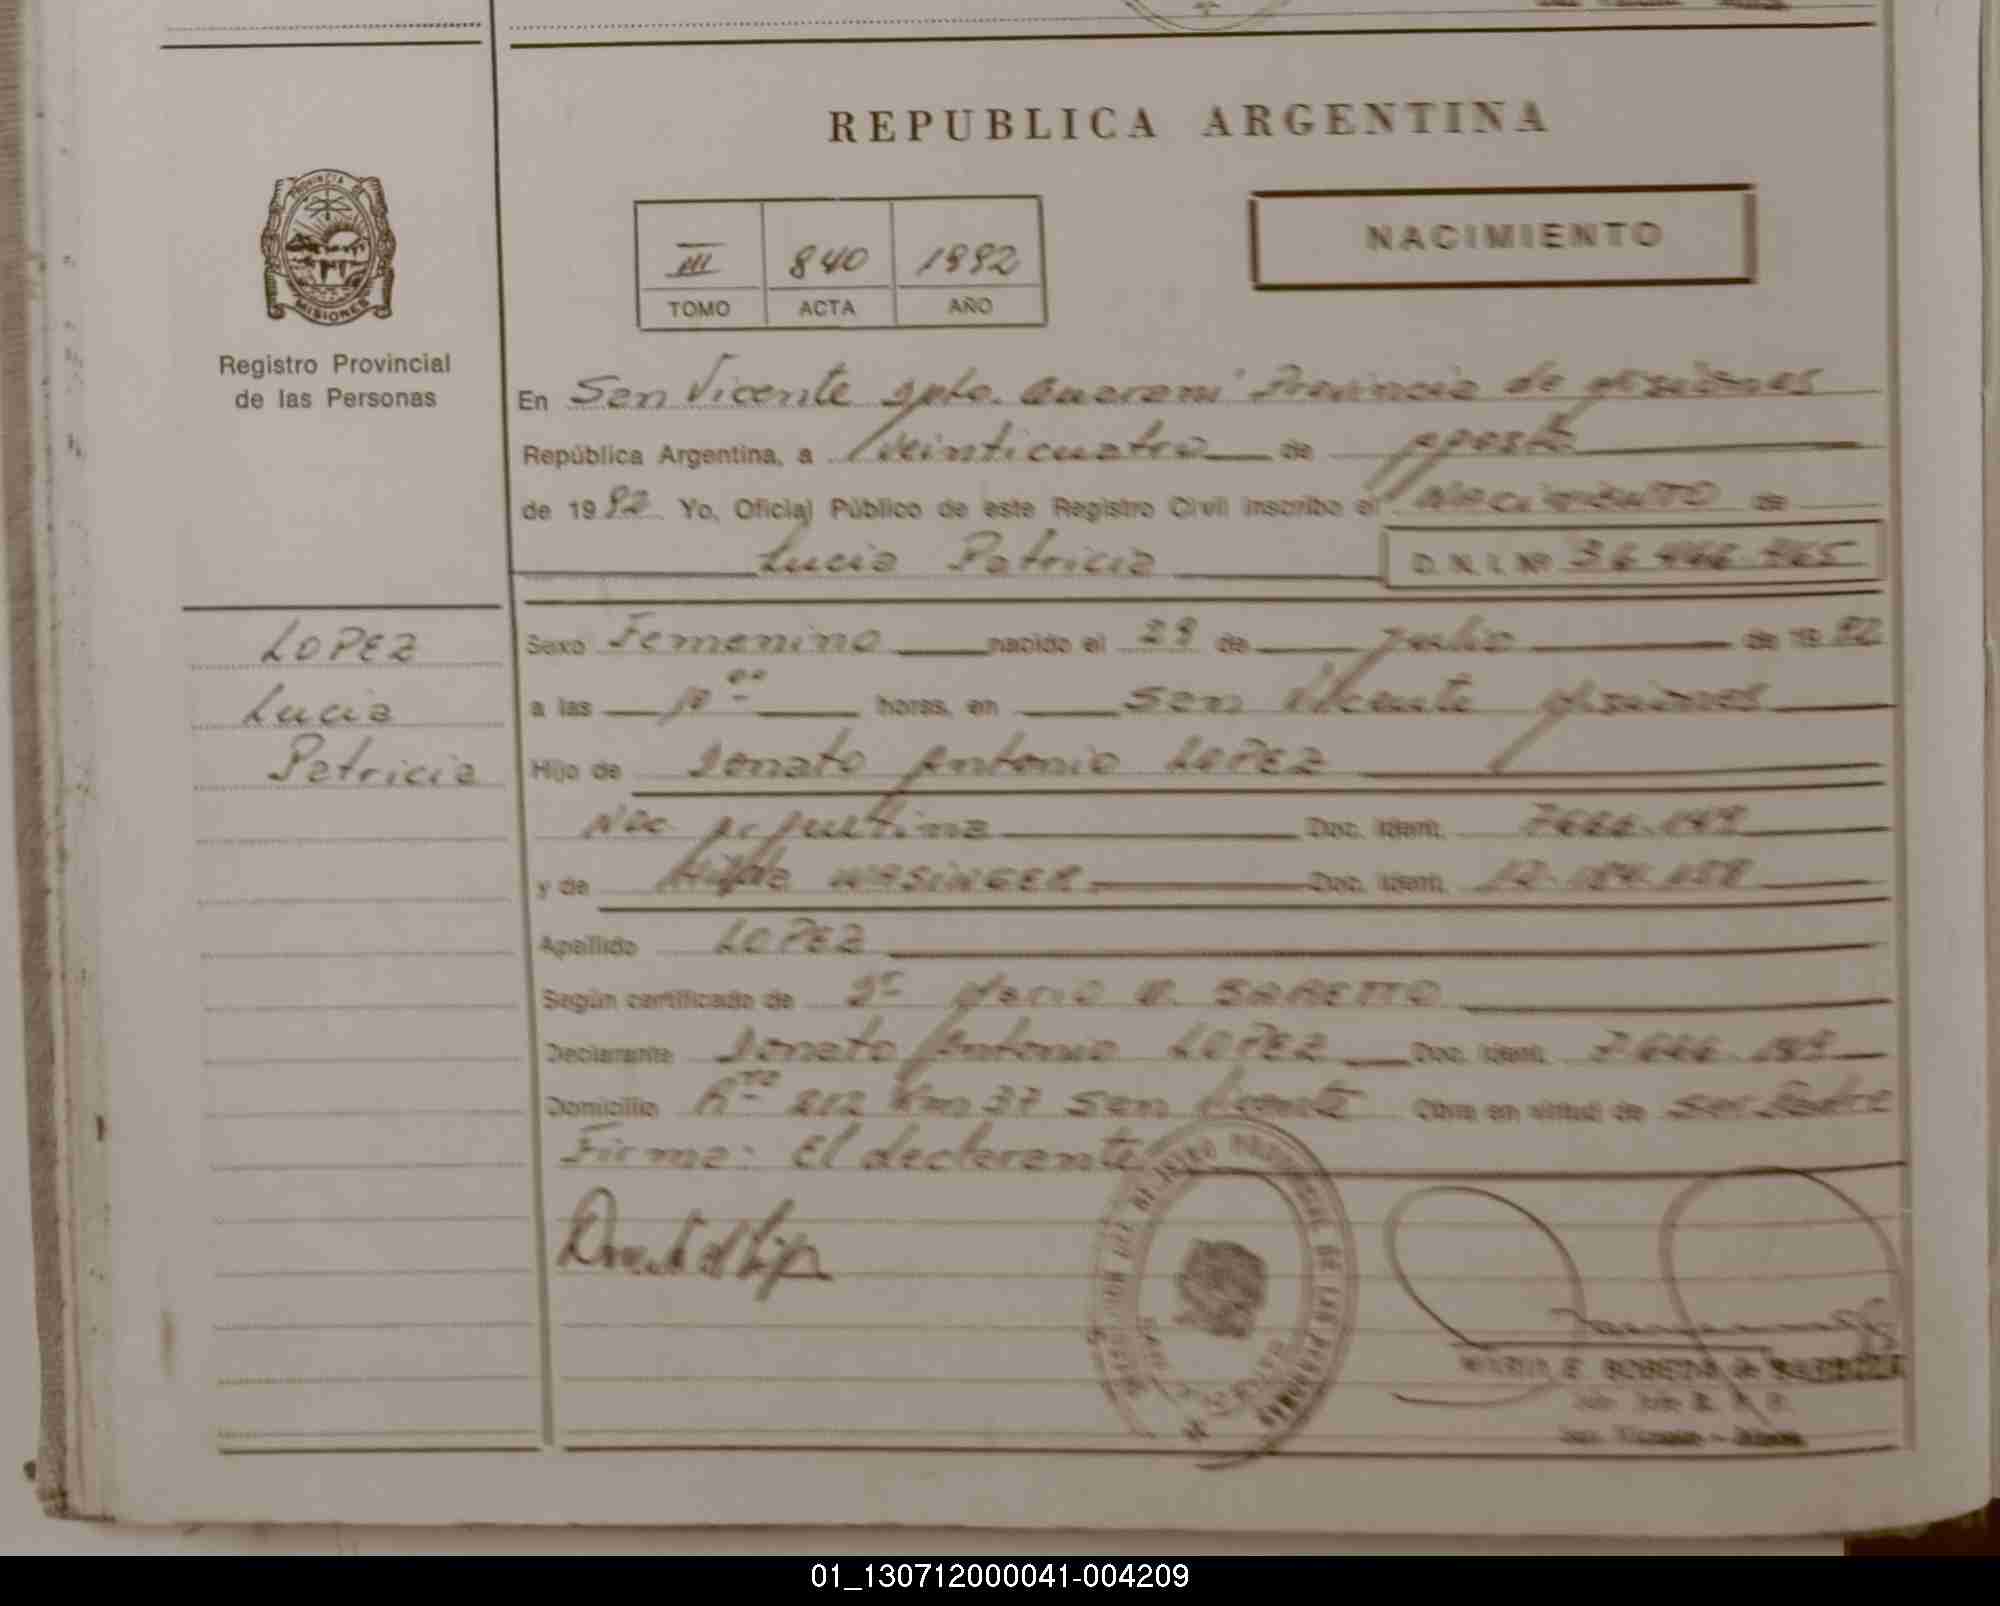 REPUBLICA ARGENTINA
PROVINCIA DE
MISIONES
Registro Provincial
de las Personas
III 840 1992
TOMO ACTA AÑO
NACIMIENTO
En San Vicente Dpto. Guarani Provincia de Misiones
República Argentina, a veinticuatro de agosto
de 1992 Yo, Oficial Público de este Registro Civil inscribo el NACIMIENTO de
Lucia Patricia D.N.I. Nº
LOPEZ
Lucia
Patricia
Sexo Femenino nacido el 29 de Julio de 1992
a las 10 horas, en San Vicente Misiones
Hijo de Donato Antonio LOPEZ
Nac. Argentina Doc. Ident.
y de WASINGER Doc. Ident.
Apellido LOPEZ
Según certificado de Dr Mario
Declarante Donato Antonio LOPEZ Doc. Ident.
Domicilio 212 Km 37 San Vicente Obra en virtud de Ser Padre
Firma: El declarante
01_130712000041-004209